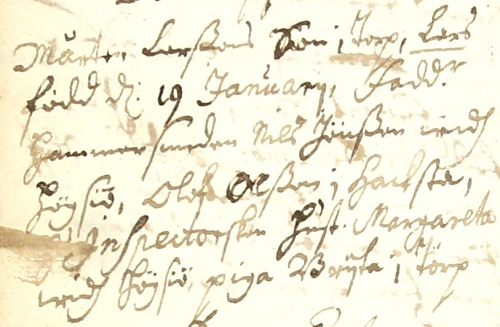 Mårten Larssons Son i Torp, Lars
född d: 19 January, Fadd:r
Hammarsmeden Nils Jönsson widh
Höÿsiö, Olof Olsson i Hacksta,
Inspectorskan Hust. Margareta
widh Höÿsiö, piga Brÿta i Törp